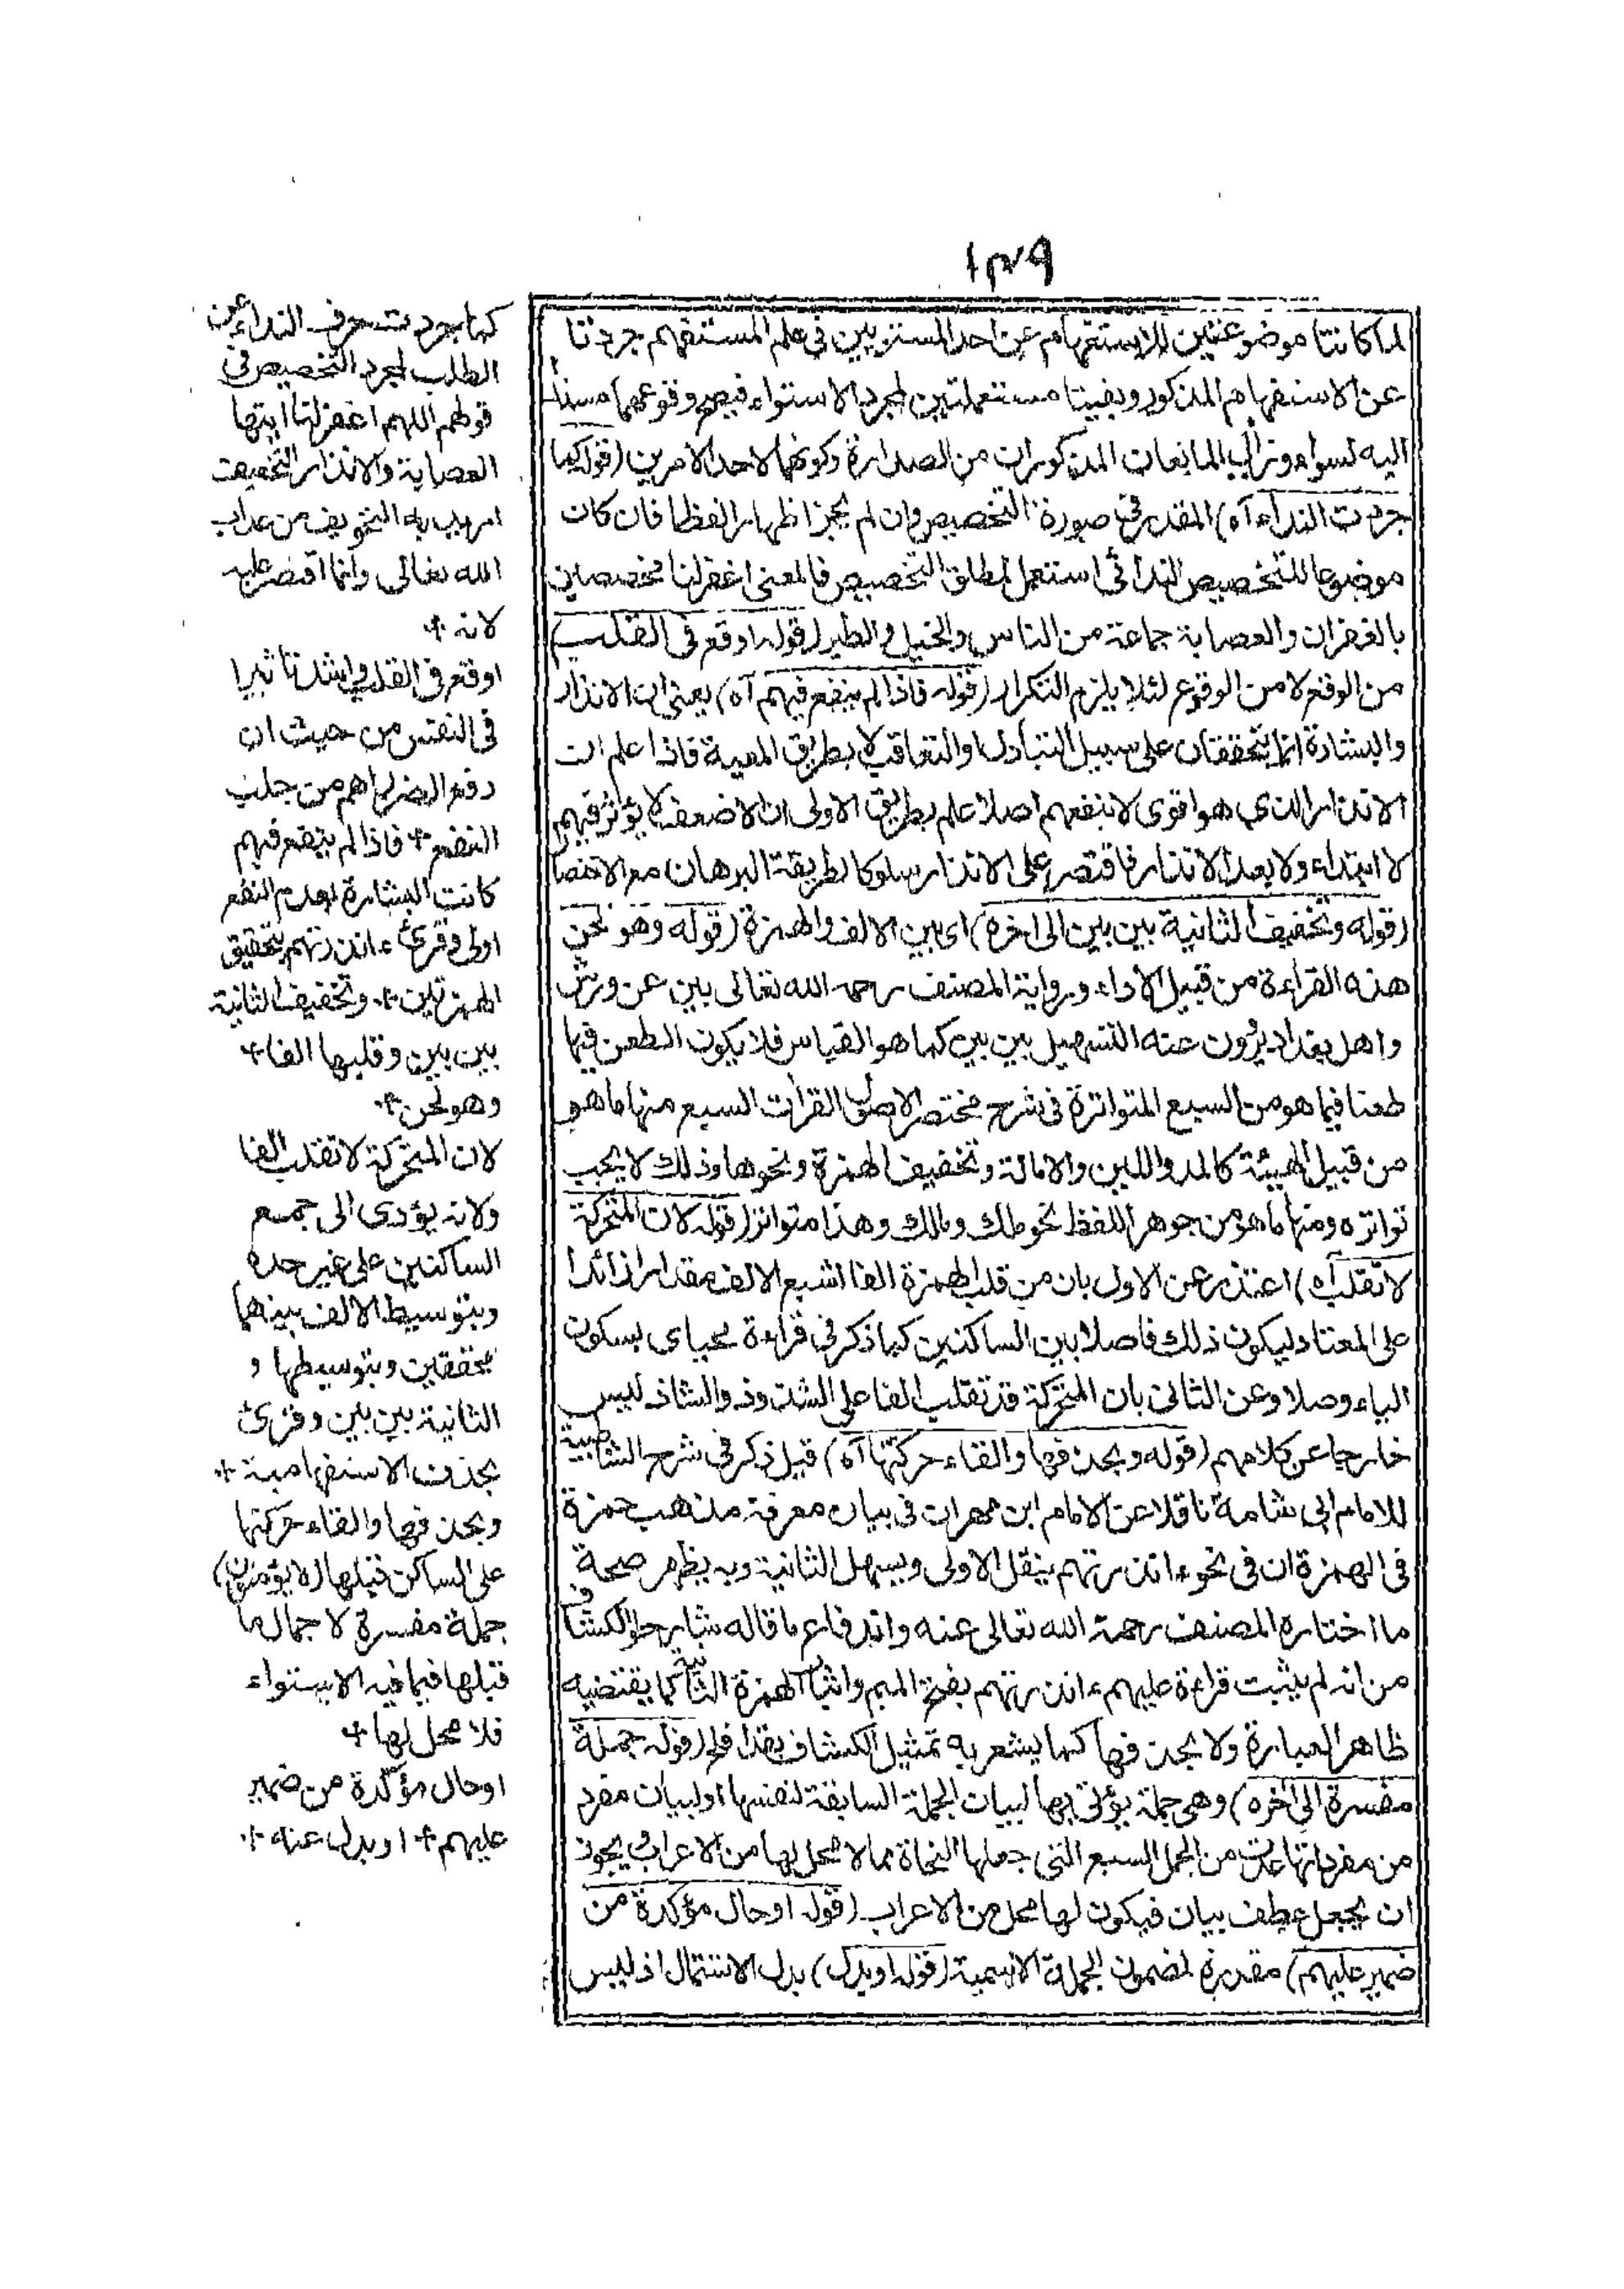 ١٣٩
لما كانتا موضوعتين للاستفهام عن احد المستويين فى علم المستفهم جردتا
عن الاستفهام المذكور وبقيتا مستعملتين لمجرد الاستواء فيصح وقوعهما مسندا
اليه لسواء وزال المانعات المذكورات من الصدارة وكونهما لاحد الامرين (قوله كما
جردت النداء آه) المقدر فى صورة التخصيص وان لم يجز اظهاره لفظا فان كان
موضوعا للتخصيص الندائى استعمل لمطلق التخصيص فالمعنى اغفر لنا مخصصين
بالغفران والعصابة جماعة من الناس والخيل والطير (قوله اوقع فى القلب)
من الوقع لا من الوقوع لئلا يلزم التكرار (قوله فاذا لم ينفع فيهم آه) يعنى ان الانذار
والبشارة انما يتحققان على سبيل التبادل والتعاقب لا بطريق المعية فاذا علم ان
الانذار الذى هو اقوى لا ينفعهم اصلا علم بطريق الاولى ان الاضعف لا يؤثر فيهم
لا ابتداء ولا بعد الانذار فاقتصر على الانذار سلوكا لطريقة البرهان مع الاختصا
(قوله وتخفيف الثانية بين بين الى اخره) اى بين الالف والهمزة (قوله وهو لحن
هذه القراءة من قبيل الاداء ورواية المصنف رحمه الله تعالى بين عن ورش
واهل بغداد يروون عنه التسهيل بين بين كما هو القياس فلا يكون الطعن فيها
طعنا فيما هو من السبع المتواترة فى شرح مختصر الاصول القرات السبع منها ما هو
من قبيل الهيئة كالمد واللين والامالة وتخفيف الهمزة ونحوها وذلك لا يجب
تواتره ومنها ما هو من جوهر اللفظ نحو ملك ومالك وهذا متواتر (قوله لان المتحركة
لا تقلب آه) اعتذر عن الاول بان من قلب الهمزة الفا اشبع الالف مقدارا زائدا
على المعتاد ليكون ذلك فاصلا بين الساكنين كما ذكر فى قراءة محياى بسكون
الياء وصلا وعن الثانى بان المتحركة قد تقلب الفا على الشذوذ والشاذ ليس
خارجا عن كلامهم (قوله وبحذفها والقاء حركتها آه) قيل ذكر فى شرح الشاطبية
للامام ابى شامة ناقلا عن الامام ابن مهران فى بيان معرفة مذهب حمزة
فى الهمزة ان فى نحو ءانذرتهم ينقل الاولى ويسهل الثانية وبه يظهر صحة
ما اختاره المصنف رحمة الله تعالى عنه واندفاع ما قاله شارحوا الكشاف
من انه لم يثبت قراءة عليهم ءانذرتهم بفتح الميم واثبات الهمزة الثانية كما يقتضيه
ظاهر العبارة ولا بحذفها كما يشعر به تمثيل الكشاف بقد افلح (قوله جملة
مفسرة الى اخره) وهى جملة يؤتى بها لبيان الجملة السابقة لنفسها او لبيان مفرد
من مفرداتها عدت من الجمل السبع التى جعلها النحاة مما لا محل لها من الاعراب ويجوز
ان يجعل عطف بيان فيكون لها محل من الاعراب (قوله او حال مؤكدة من
ضمير عليهم) مقدرة لمضمون الجملة الاسمية (قوله او بدل) بدل الاشتمال اذ ليس
كما جردت حرف النداء عن
الطلب لمجرد التخصيص فى
قولهم اللهم اغفر لنا ايتها
العصابة والانذار التخويف
اريد به التخويف من عذاب
الله تعالى وانما اقتصر عليه
لانه +
اوقع فى القلب واشد تاثيرا
فى النفس من حيث ان
دفع الضر اهم من جلب
النفع + فاذا لم ينفع فيهم
كانت البشارة بعدم النفع
اولى وقرئ ءانذرتهم بتحقيق
الهمزتين + وتخفيف الثانية
بين بين وقلبها الفا +
وهو لحن +
لان المتحركة لا تقلب الفا
ولانه يؤدى الى جمع
الساكنين على غير حده
وبتوسيط الالف بينهما
محققين وبتوسيطها و
الثانية بين بين وقرئ
بحذف الاستفهامية +
وبحذفها والقاء حركتها
على الساكن قبلها (لا يؤمنون)
جملة مفسرة لاجمال ما
قبلها فيما فيه الاستواء
فلا محل لها +
او حال مؤكدة من ضمير
عليهم + او بدل عنه +